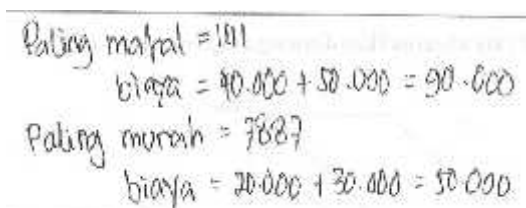 Paling mahal = 1411
biaya = 40.000 + 50.000 = 90.000
Paling murah = 7887
biaya = 20.000 + 30.000 = 50.000